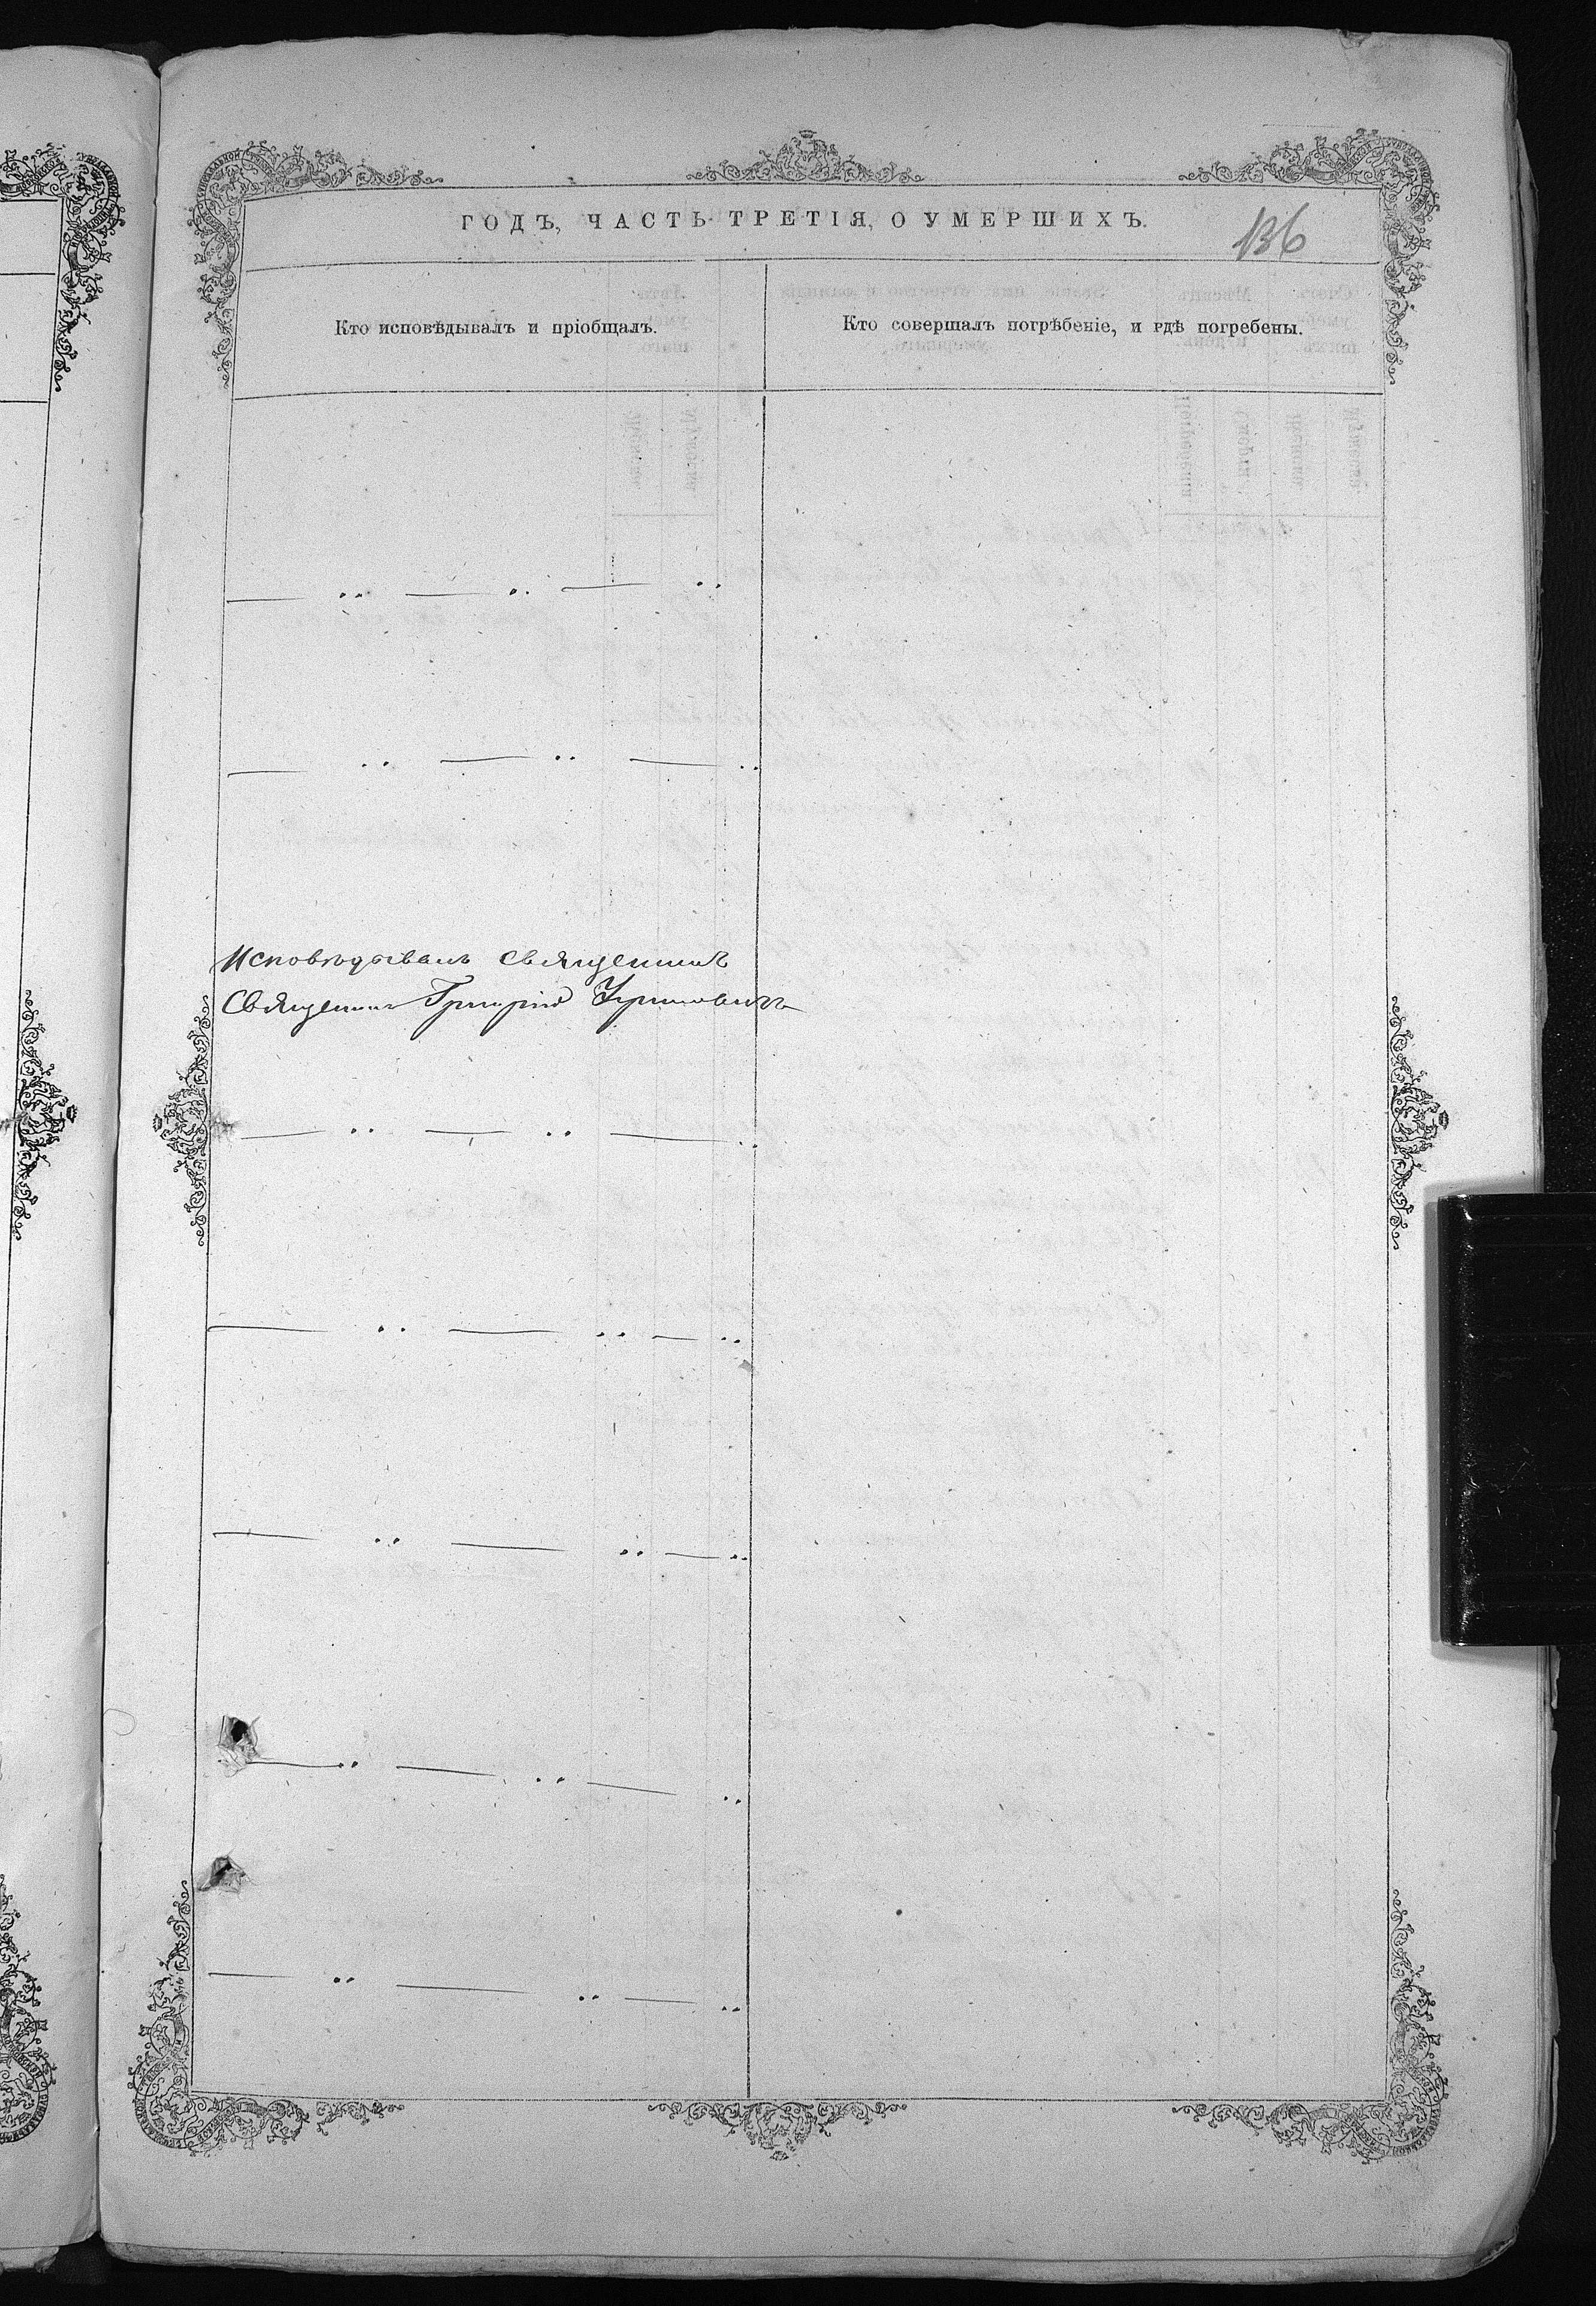 ГОДЪ, ЧАСТЬ ТРЕТІЯ, О УМЕРШИХЪ.
136
Кто исповѣдывалъ и пріобщалъ.
Кто совершалъ погрѣбеніе, и гдѣ погребены.
Исповѣдывалъ Священникъ
Священникъ Григорій